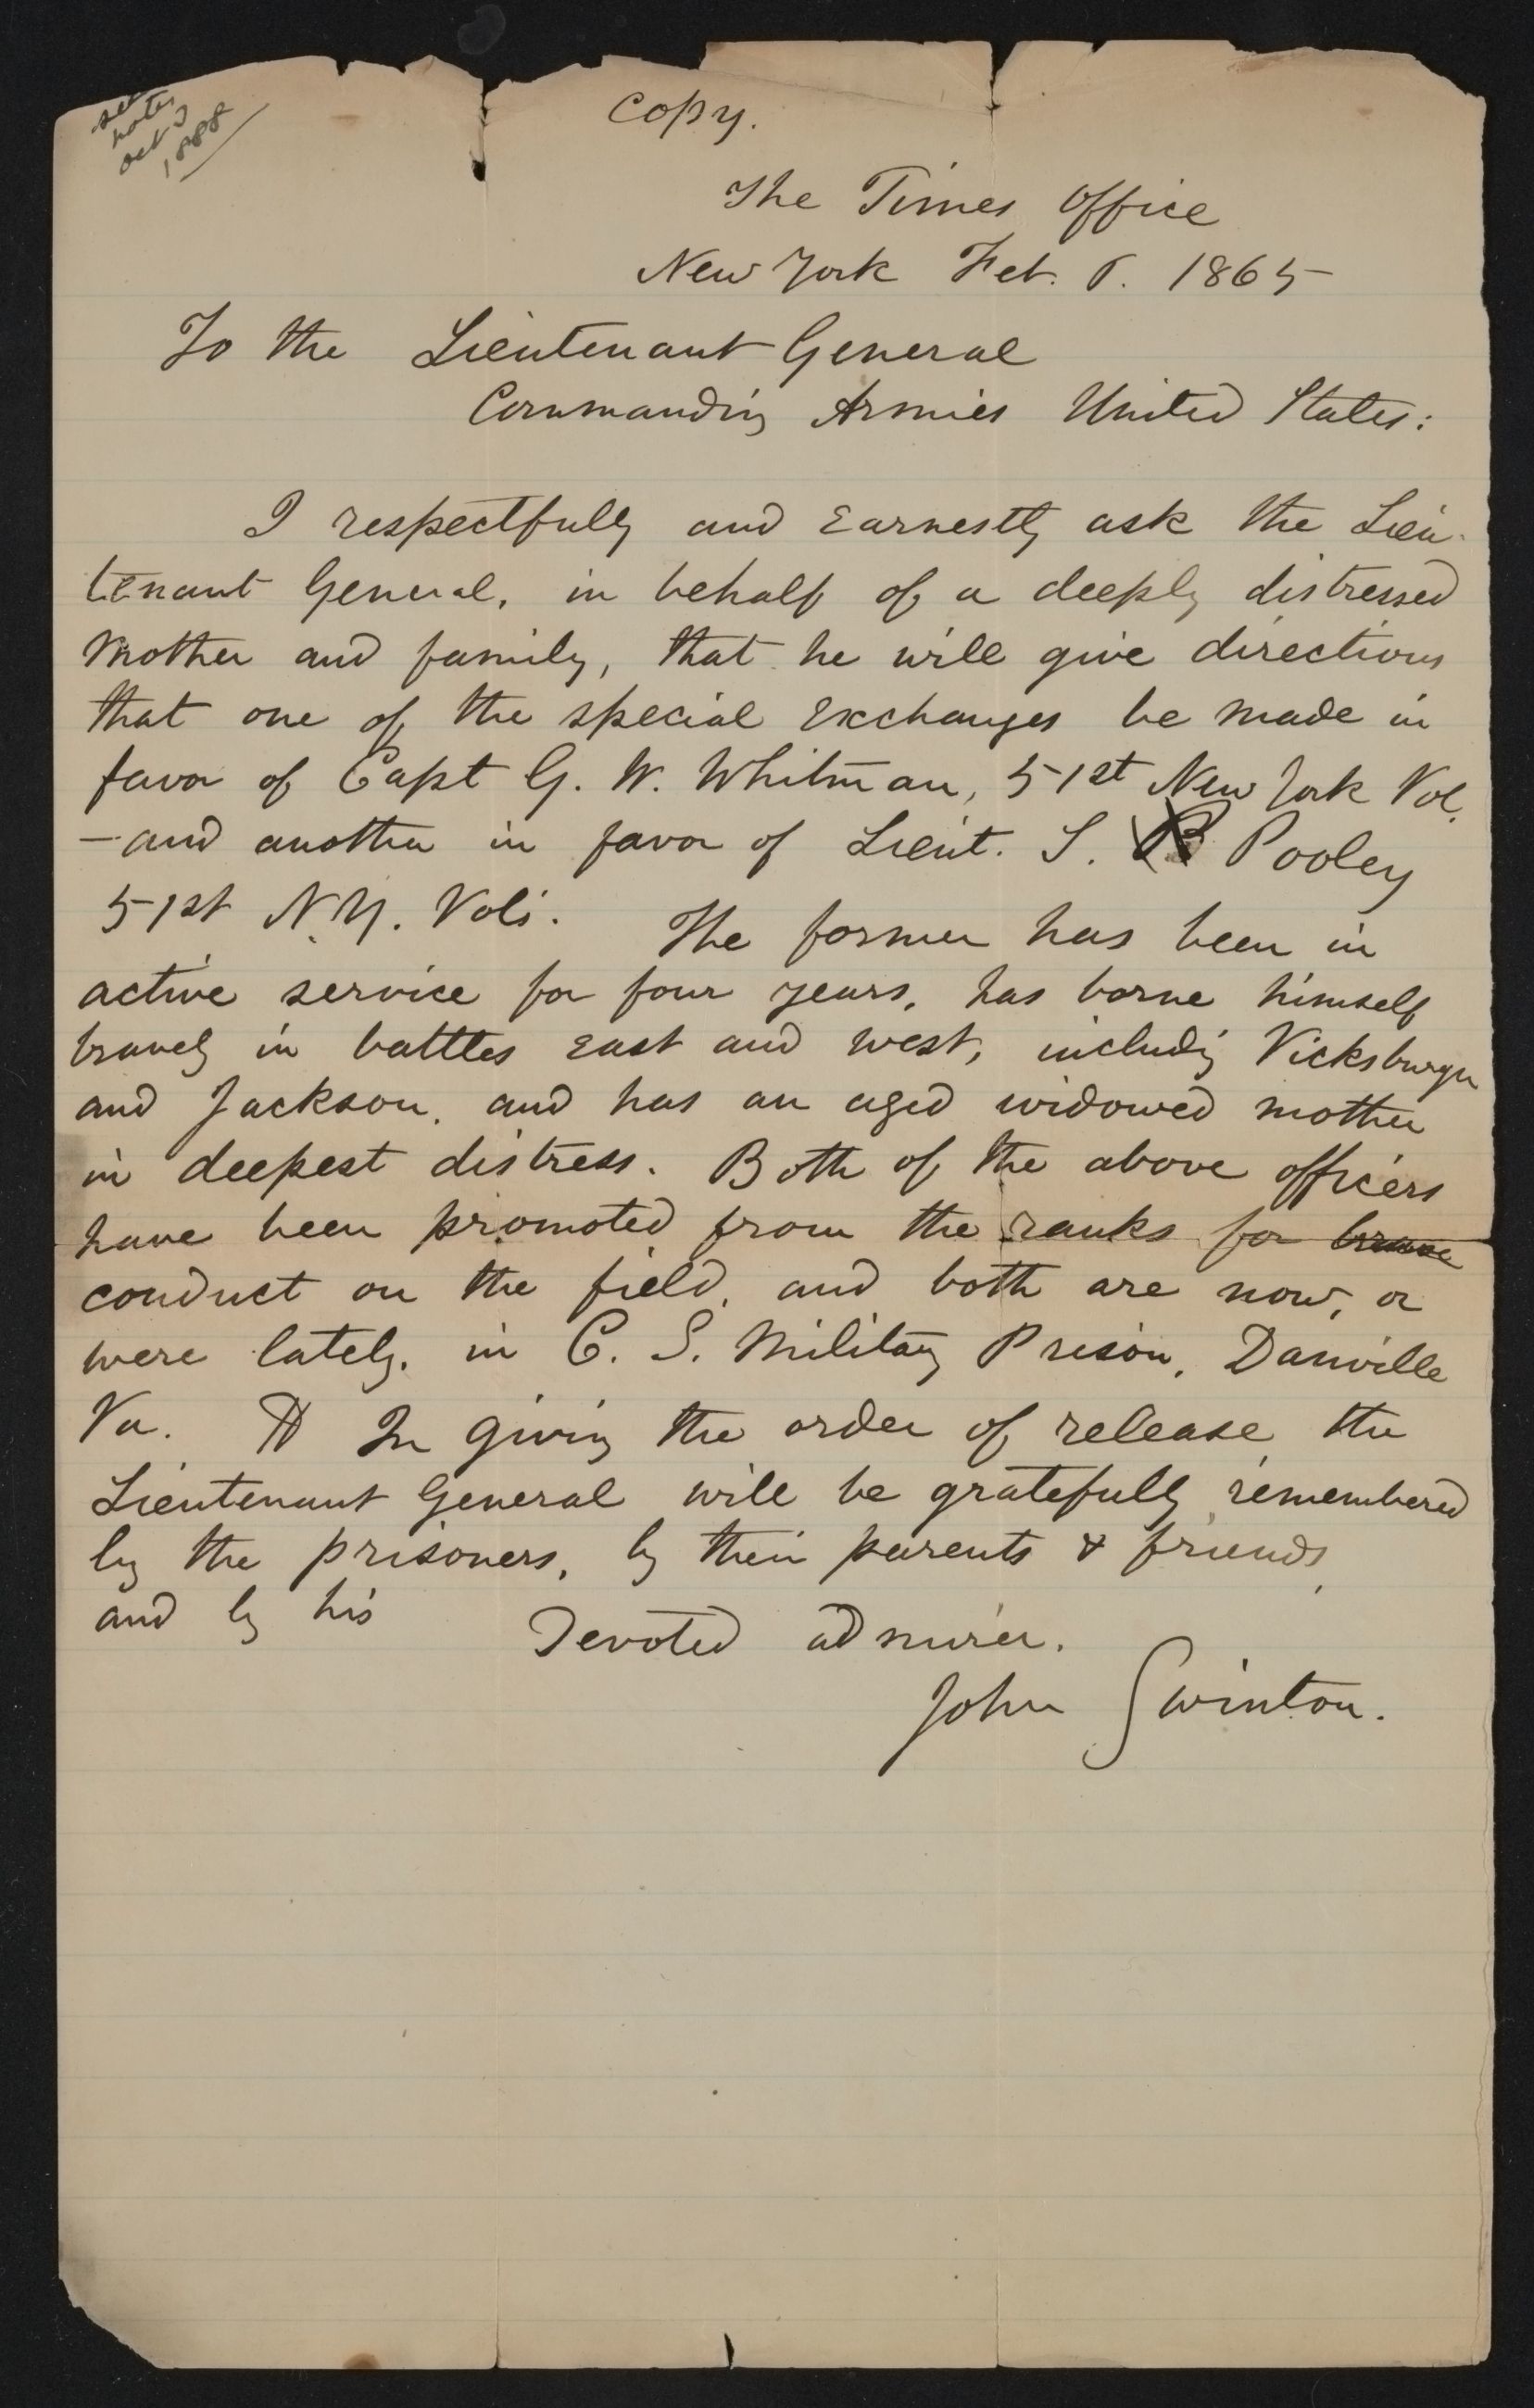 see
notes
oct 3
1888
Copy.
The Times Office
New York Feb. 6. 1865
To the Lieutenant General
Commanding Armies United States:
I respectfully and earnestly ask the Lieu-
tenant General, in behalf of a deeply distressed
mother and family, that he will give directions
that one of the special exchanges be made in
favor of Capt G. W. Whitman, 51st New York Vol.
—and another in favor of Lieut. S. Pooley
51st N.Y. Vols. The former has been in
active service for four years, has borne himself
bravely in battles east and west, including Vicksburgh
and Jackson, and has an aged widowed mother
in deepest distress. Both of the above officers
have been promoted from the ranks for brave
conduct on the field, and both are now, or
were lately, in C. S. Military Prison, Danville
Va. ¶ In giving the order of release, the
Lieutenant General will be gratefully remembered
by the prisoners, by their parents & friends,
and by his
Devoted admirer.
John Swinton.